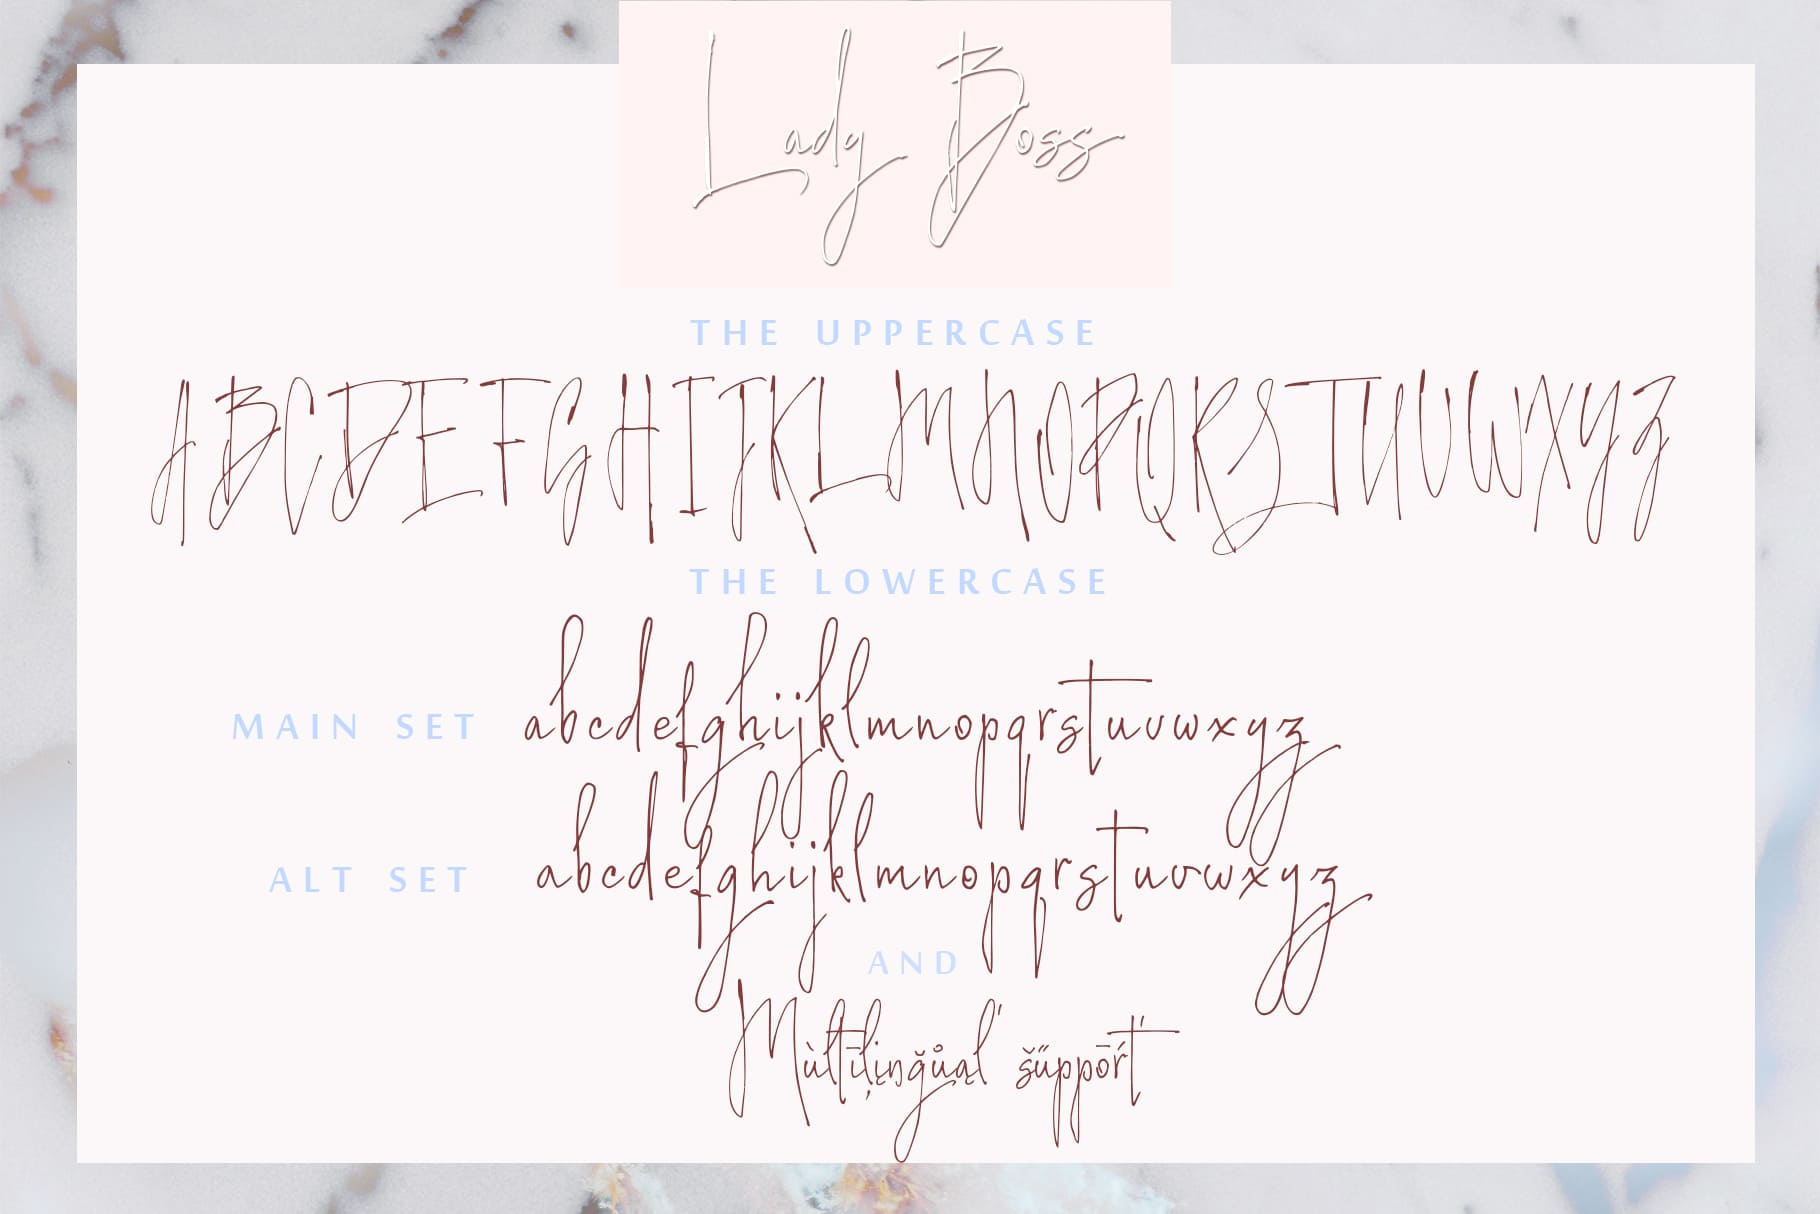 Lady Boss
THE UPPERCASE
ABCDEFGHIJKLMNOPQRSTUVWXYZ
THE LOWERCASE
MAIN SET abcdefghijklmnopqrstuvwxyz
ALT SET abcdefghijklmnopqrstuvwxyz
AND
Mùltīļįŋğůąľ šűppōŕť